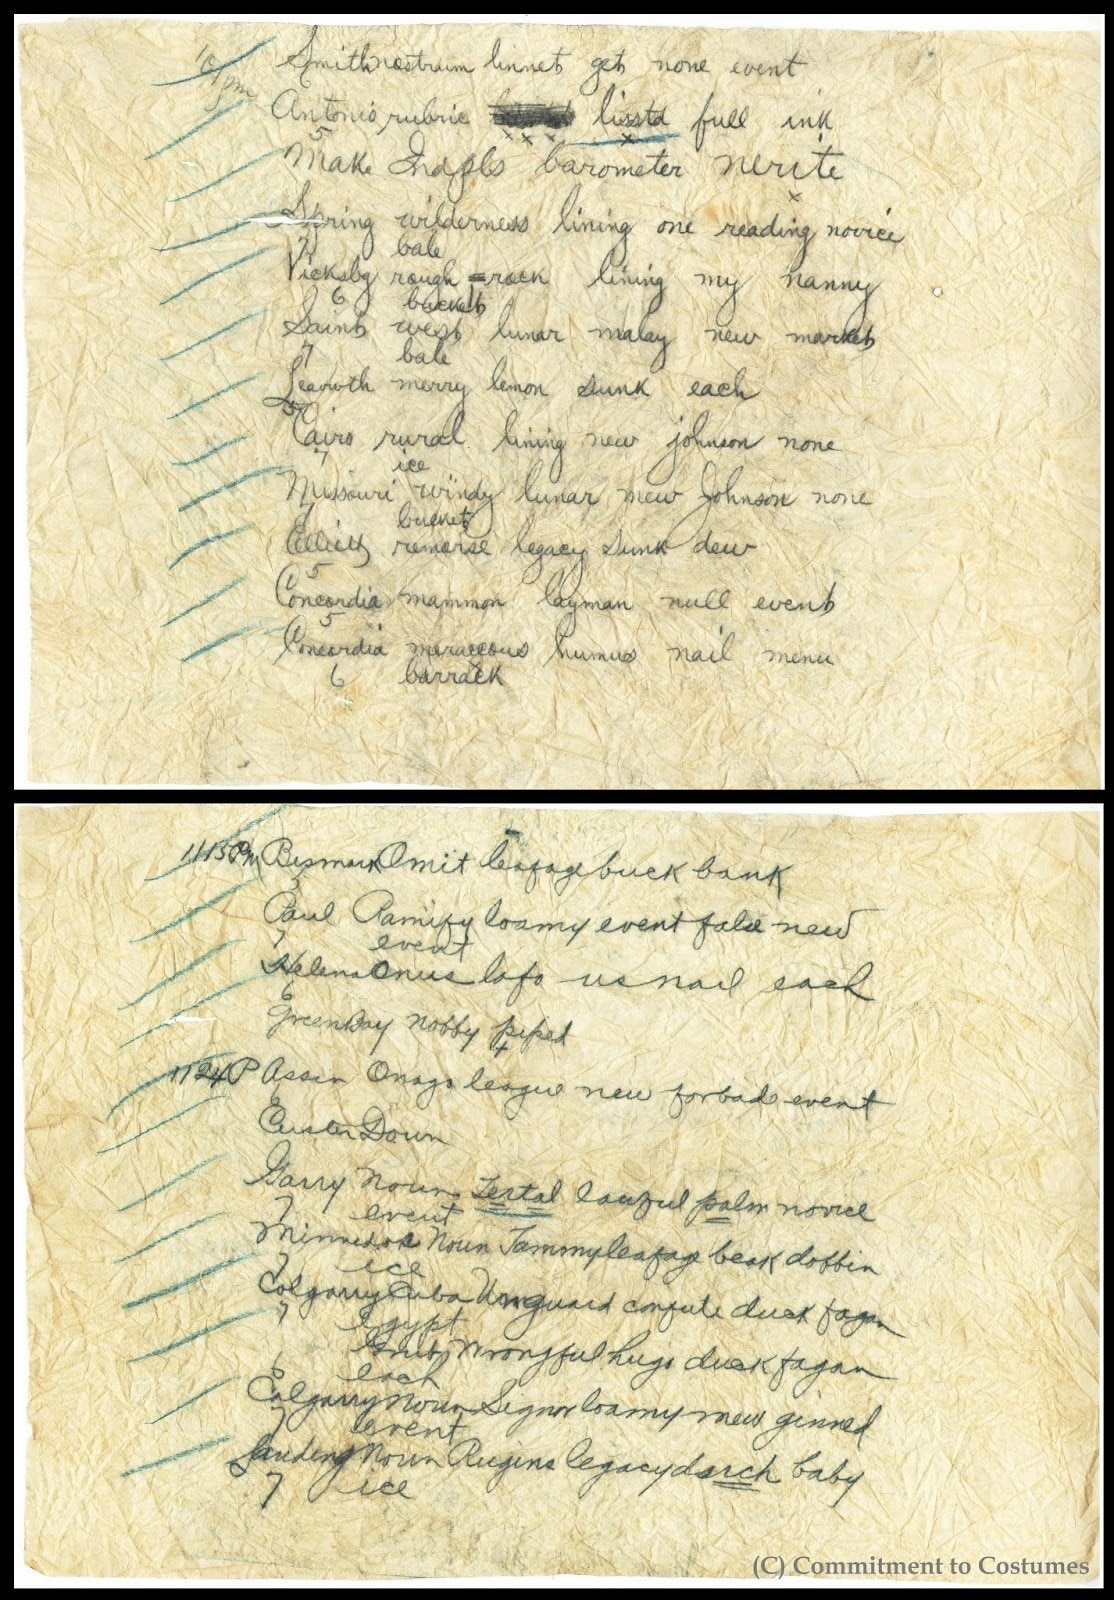 10 pm Smith nostrum linnet get none event
Antonio rubric lissta full ink
5
Make Indpls barometer nerite
Spring wilderness lining one reading novice
7 bale
Vicksbg rough = rack lining my nanny
6 bucket
Saint west lunar malay new market
7 bale
Leavwth merry lemon sunk each
5
Cairo rural lining new johnson none
7 ice
Missouri windy lunar mew Johnson none
7 bucket
Elliott remorse legacy sunk dew
5
Concordia mammon layman null event
5
Concordia meraccous humus nail menu
6 barrack
1113 Pm Bismark Omit leafage buck bank
5
Paul Ramify loamy event false new
7 event
Helena Onus lofo us nail each
6
Green Bay nobby piped
4
1124 P Assin Onago league new forbade event
6
Custer Down
Garry Noun Tertal lawful palm novice
7 event
Minnedos Noun Jammy leafage beak dobbin
7 ice
Calgarry Cuba Unguard confute duck fagan
7 Egypt
Grit wrongful hugo duck fagan
6 each
Calgarry Noun Signor loamy mew ginned
7 event
Landing Noun Rugins legacy duck baby
7 ice
(C) Commitment to Costumes